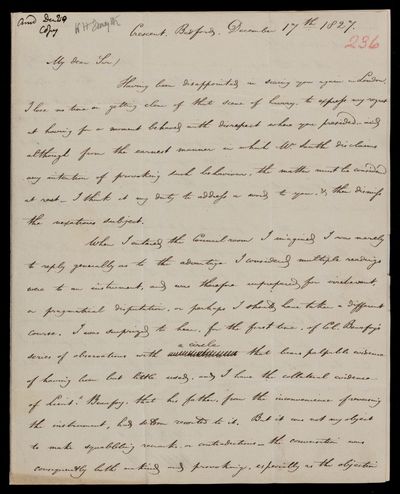 Ansd Dec 29
Copy
W H Smyth
236
Crescent, Bedford, December 17th 1827.
My dear Sir/
Having been disappointed in seeing you again in London,
I lose no time on getting clear of that scene of hurry, to express my regret
at having for a moment behaved with disrespect where you presided – and
although from the earnest manner in which Mr South disclaims
any intention of provoking such behaviour, the matter must be considered
at rest – I think it my duty to address a word to you, & then dismiss
the vexatious subject.
When I entered the Council room I imagined I was merely
to reply generally as to the advantage I considered multiple readings
were to an instrument, and was therefore unprepared for irrelevant,
or pragmatical disputation, or perhaps I should have taken a different
course. I was surprized to hear, for the first time, of Col. Beaufoy's
series of observations with a circle that bears palpable evidence
of having been but little used, and I have the collateral evidence
of Lieut. Beaufoy, that his father, from the inconvenience of reversing
the instrument, had seldom resorted to it. But it was not my object
to make squabbling remarks, or contradictions – the conversation was
consequently both unkind and provoking, especially as the objection